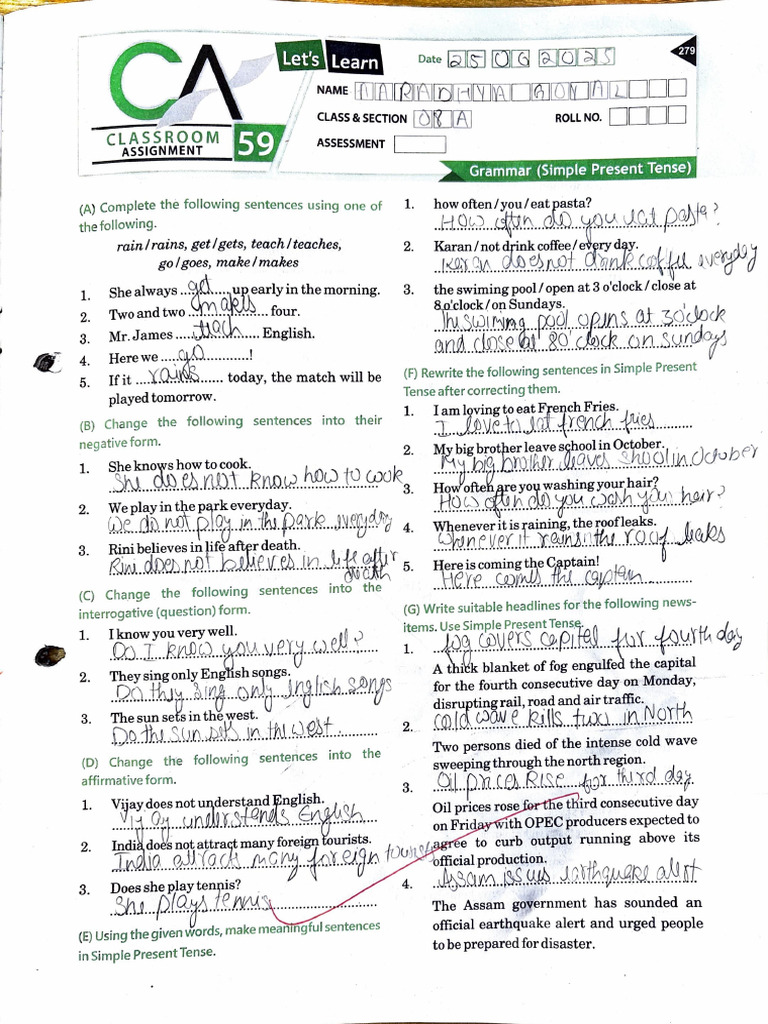 CA
CLASSROOM
ASSIGNMENT 59
Let's Learn
Date 25 06 2025
279
NAME AARADHYA GOYAL
CLASS & SECTION 08 A
ROLL NO.
ASSESSMENT
Grammar (Simple Present Tense)
(A) Complete the following sentences using one of
the following.
rain/rains, get/gets, teach/teaches,
go/goes, make/makes
1. She always get up early in the morning.
2. Two and two makes four.
3. Mr. James teach English.
4. Here we go !
5. If it rains today, the match will be
played tomorrow.
(B) Change the following sentences into their
negative form.
1. She knows how to cook.
She does not know how to cook
2. We play in the park everyday.
We do not play in the park everyday
3. Rini believes in life after death.
Rini does not believes in life after
death
(C) Change the following sentences into the
interrogative (question) form.
1. I know you very well.
Do I know you very well?
2. They sing only English songs.
Do they sing only inglish songs
3. The sun sets in the west.
Do the sun sets in the west.
(D) Change the following sentences into the
affirmative form.
1. Vijay does not understand English.
Vijay understends English
2. India does not attract many foreign tourists.
India attract many foreign
3. Does she play tennis?
She plays tennis
(E) Using the given words, make meaningful sentences
in Simple Present Tense.
1. how often/you/eat pasta?
How often do you eat pasta?
2. Karan/not drink coffee/every day.
Karan does not drink coffee everyday
3. the swiming pool/open at 3 o'clock/close at
8 o'clock/on Sundays.
The swiming pool opens at 3 o'clock
and close at 8 o'clock on sundays
(F) Rewrite the following sentences in Simple Present
Tense after correcting them.
1. I am loving to eat French Fries.
I love to eat french fries
2. My big brother leave school in October.
My big brother leaves shool in October
3. How often are you washing your hair?
How often do you wash your hair?
4. Whenever it is raining, the roof leaks.
Whenever it reins the roof leaks
5. Here is coming the Captain!
Here comes the captain
(G) Write suitable headlines for the following news-
items. Use Simple Present Tense.
1. fog covers capital for fourth day
A thick blanket of fog engulfed the capital
for the fourth consecutive day on Monday,
disrupting rail, road and air traffic.
2. cold wave kills two in North
Two persons died of the intense cold wave
sweeping through the north region.
3. Oil prices Rise for third day
Oil prices rose for the third consecutive day
on Friday with OPEC producers expected to
agree to curb output running above its
official production.
4. Assam issues earthquake alert
The Assam government has sounded an
official earthquake alert and urged people
to be prepared for disaster.